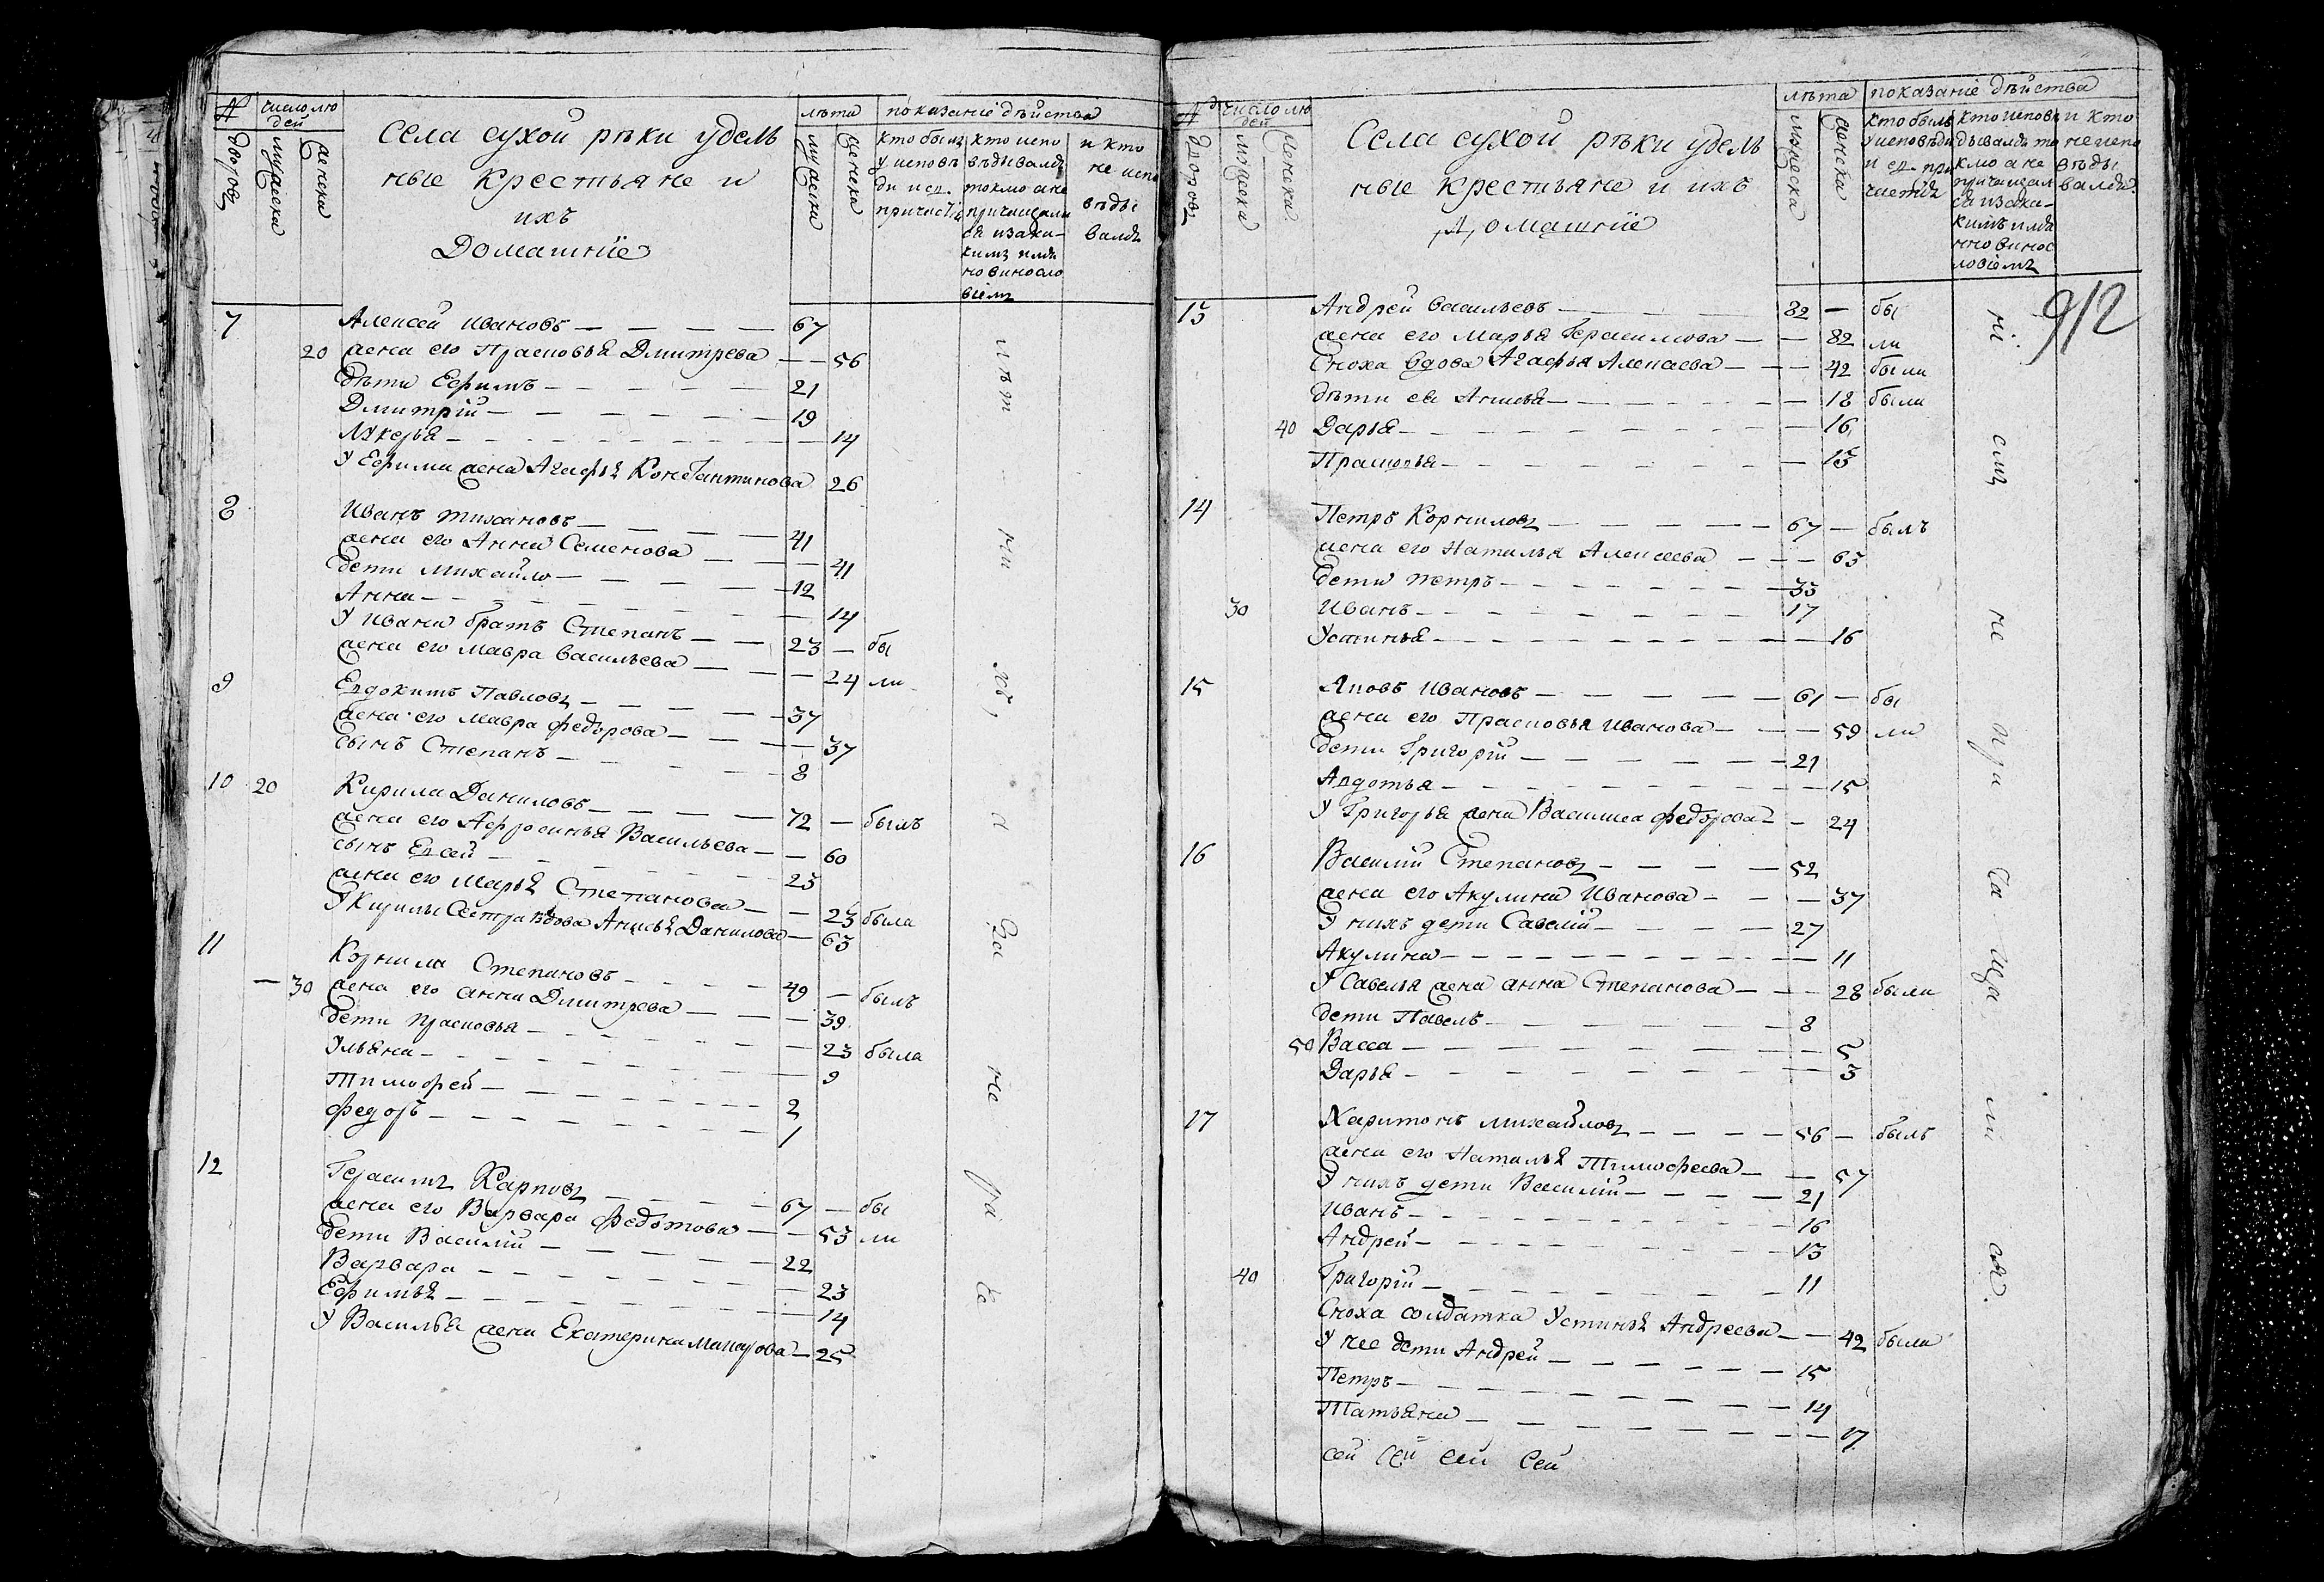 № дворовъ
число лю
дей
мужеска
женска
Села сухой рѣки удель
ные крестьяне и
ихъ
Домашніе
лѣта
мужеска
женска
показаніе дѣйства
кто былъ
у исповѣ
ди и св.
причастія
кто испо
вѣдывался
токмо а не
причащал
ся и за ка-
кимъ имя
но винсло
віемъ
и кто
не испо
вѣды
вался
7 Алексей Ивановъ — 67
20 жена его Прасковья Дмитрева — 56
дѣти Ефимъ — 21
Дмитрій — 19
Лукерья — 14
У Ефима жена Агафья Константинова 26
8 Иванъ Тихановъ — 41
жена его Анна Семенова — 41
дети Михайло — 12
Анна — 14
У Ивана братъ Степанъ — 23 — бы
жена его Мавра Васильева — 24 ли
9 Евдокимъ Павловъ — 37
жена его Мавра Федорова — 37
сынъ Степанъ — 8
10 20 Кирила Даниловъ — 72 — былъ
жена его Афросинья Васильева — 60
сынъ Евсей — 23
жена его Марья Степанова — 23 была
У Кирилы сестра вдова Анисья Данилова — 63
11 Корнила Степановъ — 49 — былъ
— 30 жена его Анна Дмитрева — 39
дети Прасковья — 23 была
Ульяна — 9
Тимофей — 2
Федоръ — 1
12 Герасимъ Карповъ — 67 — бы
жена его Варвара Федотова — 53 ли
дети Василій — 22
Варвара — 23
Ефимья — 14
У Василья жена Екатерина Макарова — 25
лѣт ни хъ, а за не ра се
№ дворовъ
число лю
дей
мужеска
женска
Села сухой рѣки удель
ные крестьяне и ихъ
Домашніе
лѣта
мужеска
женска
показаніе дѣйства
кто былъ
у исповѣди
и св. при
частія
кто исповѣ
дывался то
кмо а не
причащал
ся и за ка-
кимъ имя
нно винос
ловіемъ
и кто
не испо
вѣды
вался
912
13 Андрей Васильевъ — 82 — бы
жена его Марья Герасимова — 82 ли
Сноха вдова Агафья Алексеева — 42 была
дѣти ея Анисья — 18 была
40 Дарья — 16
Прасковья — 13
14 Петръ Корниловъ — 67 — былъ
жена его Наталья Алексеева — 63
дети Петръ — 33
30 Иванъ — 17
Устинья — 16
15 Яковъ Ивановъ — 61 — бы
жена его Прасковья Иванова — 59 ли
дети Григорій — 21
Авдотья — 15
У Григорья жена Василиса Федорова — 24
16 Василій Степановъ — 52
жена его Акулина Иванова — 37
У нихъ дети Савелій — 27
Акулина — 11
У Савелья жена Анна Степанова — 28 была
дети Павелъ — 8
50 Васса — 5
Дарья — 3
17 Харитонъ Михайловъ — 56 — былъ
жена его Наталья Тимофеева — 57
У нихъ дети Василій — 21
Иванъ — 16
Андрей — 13
40 Григорій — 11
Сноха солдатка Устинья Андреева — 42 была
У нее дети Андрей — 15
Петръ — 14
Татьяна — 17
сей сей сей сей
ні емъ не при ча ща ли ся.